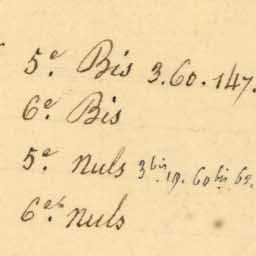 5e. Bis 3.60.147.
6e. Bis
5e. nuls 3bis.19.60bis.69.
6e. nuls